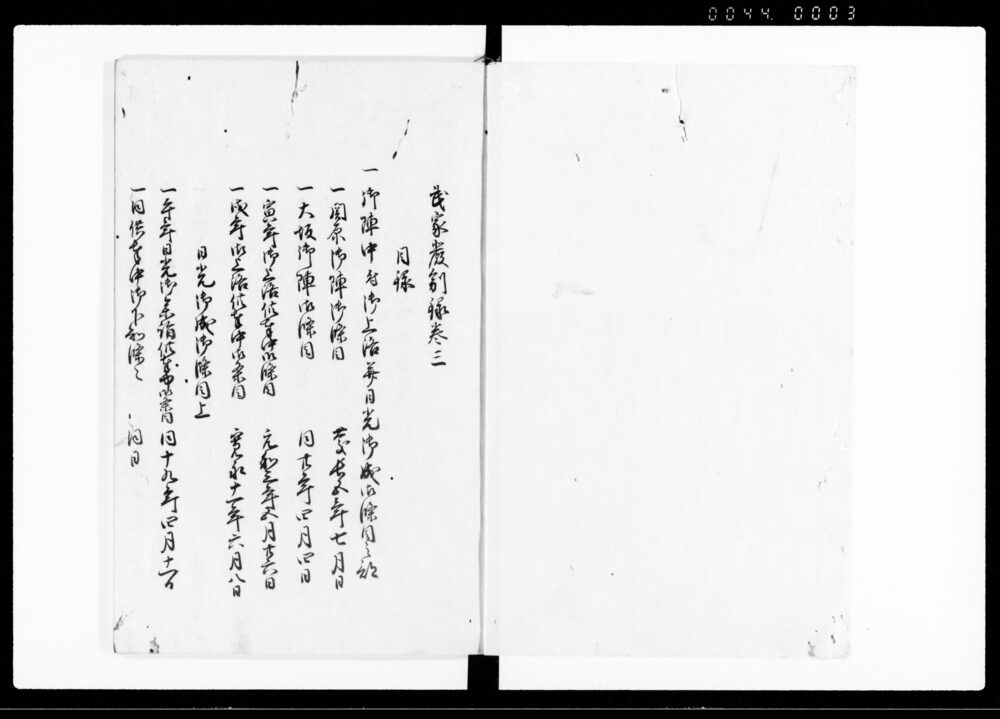 0044. 0003
武家嚴制録巻三
目録
一御陣中并御上洛并日光御成御條目之部
一関原御陣御條目 慶長五年七月日
一大坂御陣御條目 同廿年四月四日
一寅年御上洛供奉中御條目 元和三年五月廿六日
一戌年御上洛供奉中御條目 寛永十一年六月八日
日光御成御條目上
一午年日光御参詣供奉中御條目 同十九年四月十一日
一同供奉中御下知條々 同日